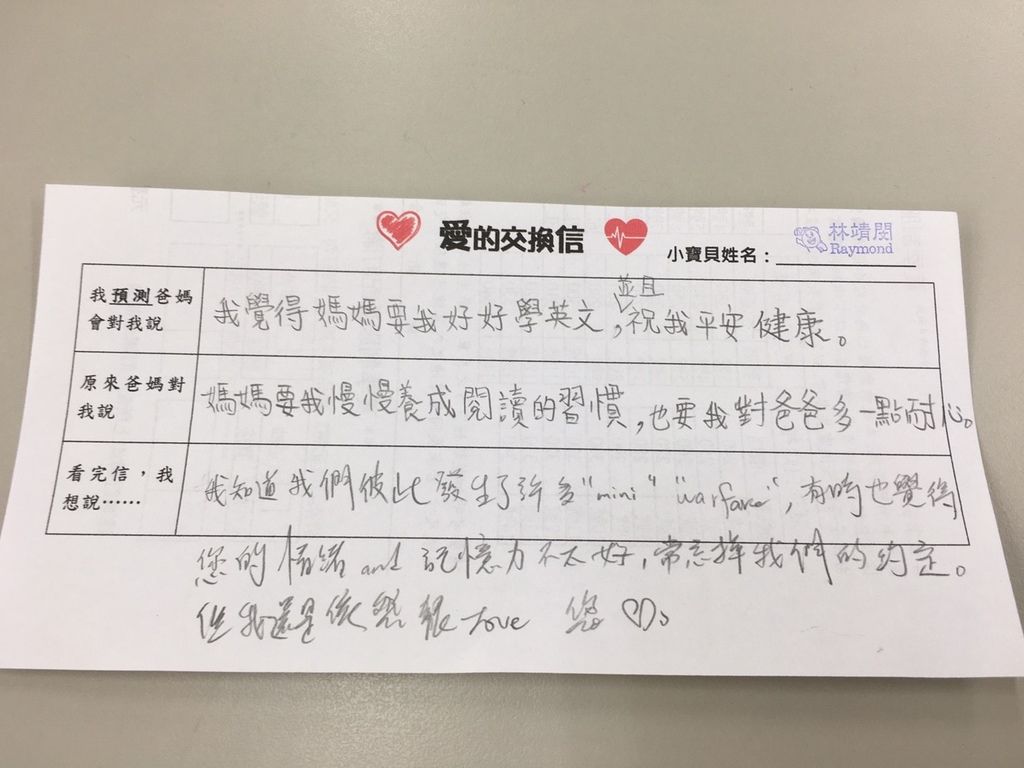 愛的交換信
小寶貝姓名：
林靖閔
Raymond
我預測爸媽
會對我說
我覺得媽媽要我好好學英文，並且祝我平安健康。
原來爸媽對
我說
媽媽要我慢慢養成閱讀的習慣，也要我對爸爸多一點耐心。
看完信，我
想說……
我知道我們彼此發生了許多"mini" "warfare"，有時也覺得
您的情緒and記憶力不太好，常忘掉我們的約定。
但我還是依然很Love 您♡。